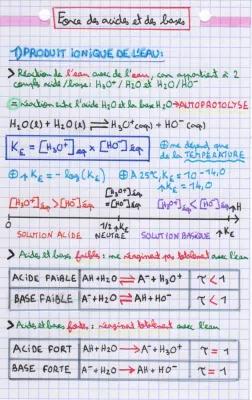 Force des acides et des bases
1) PRODUIT IONIQUE DE L'EAU:
> Réaction de l'eau avec de l'eau, car appartient à 2
couples acide/base: H₃O⁺/H₂O et H₂O/HO⁻
= Réaction entre l'acide H₂O et la base H₂O → AUTOPROTOLYSE
H₂O(l) + H₂O(l) ⇌ H₃O⁺(aq) + HO⁻(aq)
Kₑ = [H₃O⁺]éq × [HO⁻]éq
⊕ ne dépend que
de la TEMPÉRATURE
⊕ pKₑ = -log(Kₑ)
⊕ A 25°C, Kₑ = 10⁻¹⁴,⁰
pKₑ = 14,0
[H₃O⁺]éq > [HO⁻]éq
[H₃O⁺]éq
= [HO⁻]éq
[H₃O⁺]éq < [HO⁻]éq
pH
0
1/2 pKₑ
pKₑ
SOLUTION ACIDE
NEUTRE
SOLUTION BASIQUE
> Acide et base faibles: ne réagissent pas totalement avec l'eau
ACIDE FAIBLE AH+H₂O ⇌ A⁻+H₃O⁺ τ < 1
BASE FAIBLE A⁻+H₂O ⇌ AH+HO⁻ τ < 1
> Acide et base forts: réagissent totalement avec l'eau
ACIDE FORT AH+H₂O → A⁻+H₃O⁺ τ = 1
BASE FORTE A⁻+H₂O → AH+HO⁻ τ = 1